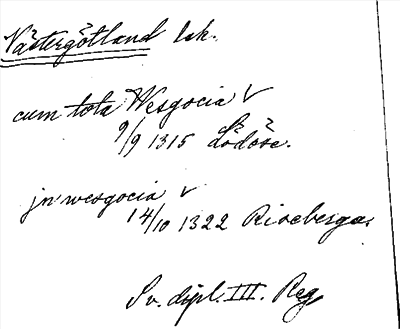 Västergötland lsk.
cum tota Wesgocia √
9/9 1315 Lödöse.
jn wesgocia √
14/10 1322 Riseberga.
Sv. dipl. III. Reg.